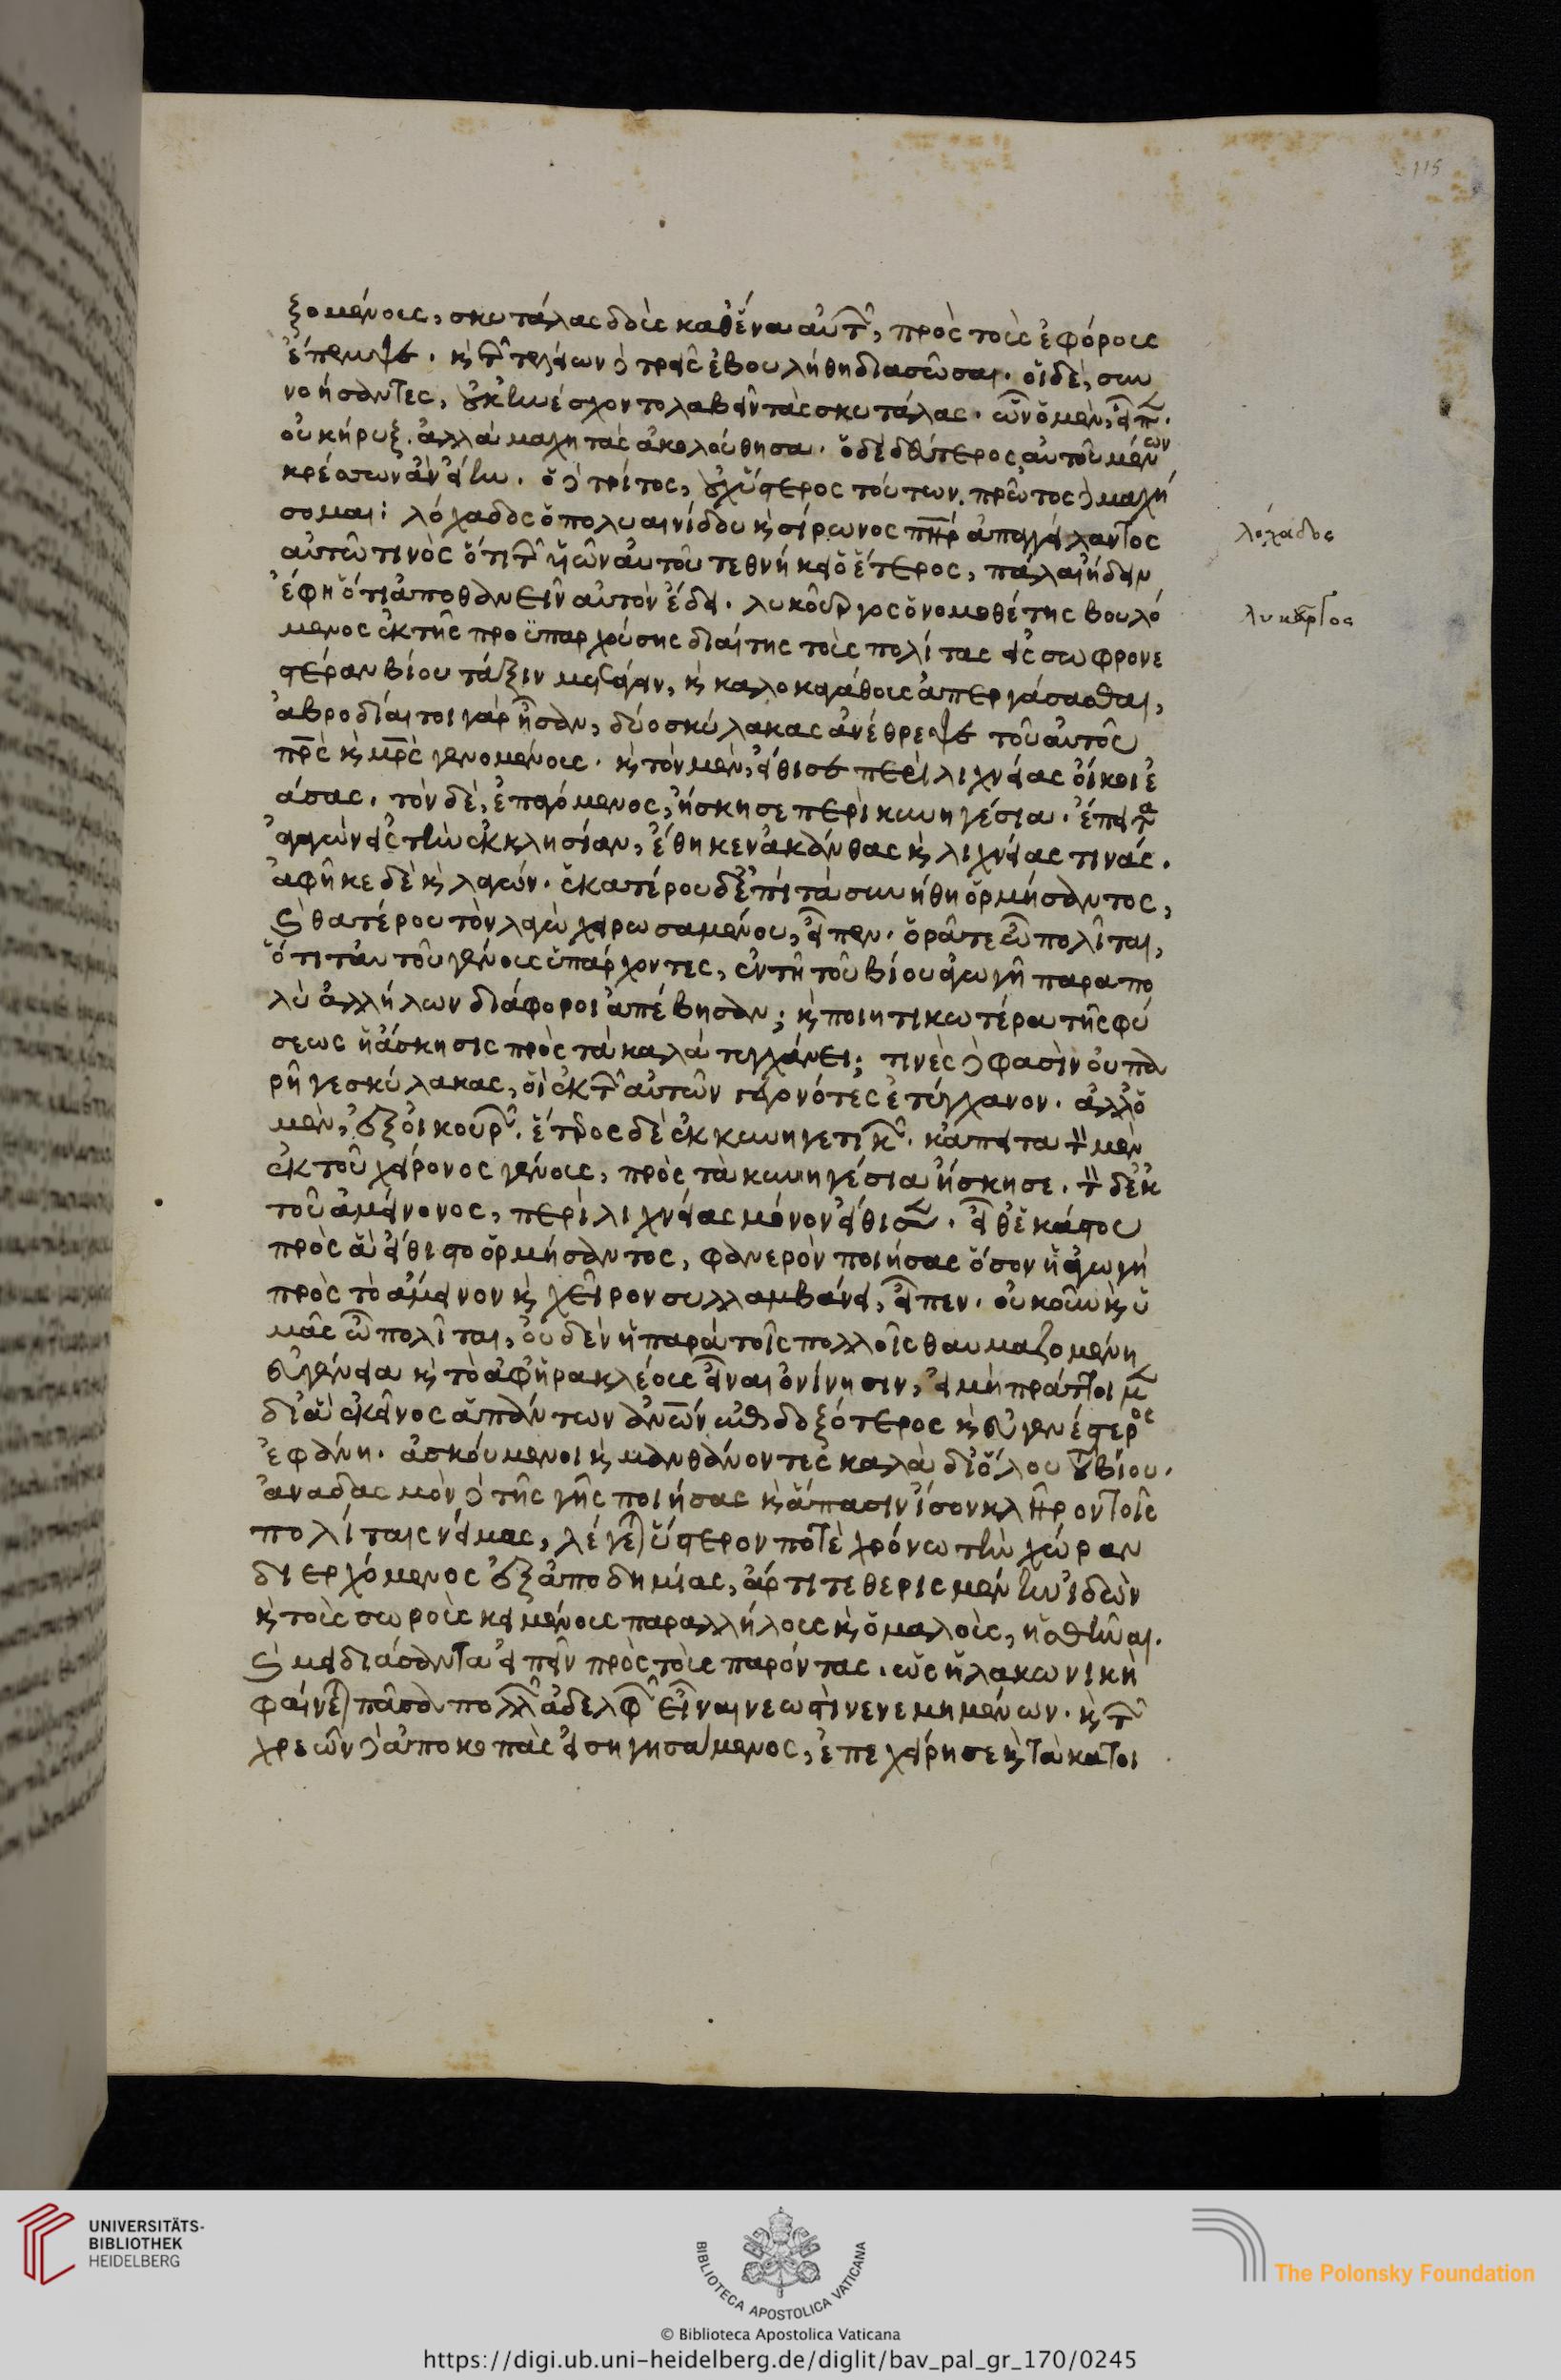 115
ξομένους, σκυτάλας δοὺς καθ' ἕνα αὐτῶν, πρὸς τοὺς ἐφόρους
ἔπεμψε. καὶ τῶν τελείων δὲ τρεῖς ἐβουλήθη διασῶσαι. οἱ δὲ, συν
νοήσαντες, οὐκ ἠνέσχοντο λαβεῖν τὰς σκυτάλας. ὧν ὁ μὲν, εἶπεν.
οὐ κήρυξ. ἀλλὰ μαχητὰς ἀκολούθησα. ὁ δὲ δεύτερος, αὐτοῦ μένων
κρέσσων ἂν εἴην. ὁ δὲ τρίτος, οὐχ ὕστερος τούτων. πρῶτος δὲ μαχή
σομαι: λόχαδος ὁ πολυαινίδου καὶ σίρωνος πατὴρ ἀπαγγείλαντος
αὐτῶ τινὸς ὅτι τῶν υἱῶν αὐτοῦ τεθνήκει ὁ ἕτερος, πάλαι ἤδειν
ἔφη ὅτι ἀποθανεῖν αὐτὸν ἔδει. λυκοῦργος ὁ νομοθέτης βουλό
μενος ἐκ τῆς προϋπαρχούσης διαίτης τοὺς πολίτας εἰς σωφρονε
στέραν βίου τάξιν μεταγαγεῖν, καὶ καλοκἀγάθους ἀπεργάσασθαι,
ἁβροδίαιτοι γὰρ ἦσαν, δύο σκύλακας ἀνέθρεψε τοῦ αὐτοῦ
πατρὸς καὶ μητρὸς γενομένους. καὶ τὸν μὲν, εἴθισε περὶ λιχνείας οἴκοι ἐ
άσας. τὸν δὲ, ἐπαγόμενος, ἤσκησε περὶ κυνηγέσια. ἔπειτα
ἀγαγὼν εἰς τὴν ἐκκλησίαν, ἔθηκεν ἀκάνθας καὶ λιχνείας τινάς.
ἀφῆκε δὲ καὶ λαγών. ἑκατέρου δ' ἐπὶ τὰ συνήθη ὁρμήσαντος,
καὶ θατέρου τὸν λαγὼ χειρωσαμένου, εἶπεν. ὁρᾶτε ὦ πολῖται,
ὅτι ταυτοῦ γένους ὑπάρχοντες, ἐν τῆ τοῦ βίου ἀγωγῆ παραπο
λὺ ἀλλήλων διάφοροι ἀπέβησαν; καὶ ποιητικωτέρα τῆς φύ
σεως ἡ ἄσκησις πρὸς τὰ καλὰ τυγχάνει; τινὲς δὲ φασὶν οὐ πα
ρῆγε σκύλακας, οἱ ἐκ τῶν αὐτῶν γεγονότες ἐτύγχανον. ἀλλ' ὁ
μὲν, ἐξ οἰκουρῶν. ἕτερος δὲ ἐκ κυνηγετικῶν. κἄπειτα τὸν μὲν
ἐκ τοῦ χείρονος γένους, πρὸς τὰ κυνηγέσια ἤσκησε. τὸν δ' ἐκ
τοῦ ἀμείνονος, περὶ λιχνείας μόνον εἴθισεν. εἶθ' ἑκάστου
πρὸς ἃ εἴθιστο ὁρμήσαντος, φανερὸν ποιήσας ὅσον ἡ ἀγωγὴ
πρὸς τὸ ἄμεινον καὶ χεῖρον συλλαμβάνει, εἶπεν. οὐκοῦν καὶ ὑ
μᾶς ὦ πολῖται, οὐδὲν ἡ παρὰ τοῖς πολλοῖς θαυμαζομένη
εὐγένεια καὶ τὸ ἀφ' ἡρακλέους εἶναι ὀνίνησιν, εἰ μὴ πράττοιμεν
δι' ἃ ἐκεῖνος ἁπάντων ἀνθρώπων ἐνδοξότερος καὶ εὐγενέστερος
ἐφάνη. ἀσκούμενοι καὶ μανθάνοντες καλὰ δι' ὅλου τοῦ βίου.
ἀναδασμὸν δὲ τῆς γῆς ποιήσας καὶ ἅπασιν ἴσον κλῆρον τοῖς
πολίταις νείμας, λέγεται ὕστερον ποτὲ χρόνω τὴν χώραν
διερχόμενος ἐξ ἀποδημίας, ἄρτι τεθερισμένην ἰδὼν
καὶ τοὺς σωροὺς κειμένους παραλλήλους καὶ ὁμαλοὺς, ἡσθῆναι.
καὶ μειδιάσαντα εἰπεῖν πρὸς τοὺς παρόντας. ὡς ἡ λακωνικὴ
φαίνεται πᾶσα πολλῶν ἀδελφῶν εἶναι νεωστὶ νενεμημένων. καὶ τῶν
χρεῶν δὲ ἀποκοπὰς εἰσηγησάμενος, ἐπεχείρησε καὶ τὰ κατοι
λόχαδος
λυκοῦργος
UNIVERSITÄTS-
BIBLIOTHEK
HEIDELBERG
BIBLIOTECA APOSTOLICA VATICANA
The Polonsky Foundation
© Biblioteca Apostolica Vaticana
https://digi.ub.uni-heidelberg.de/diglit/bav_pal_gr_170/0245